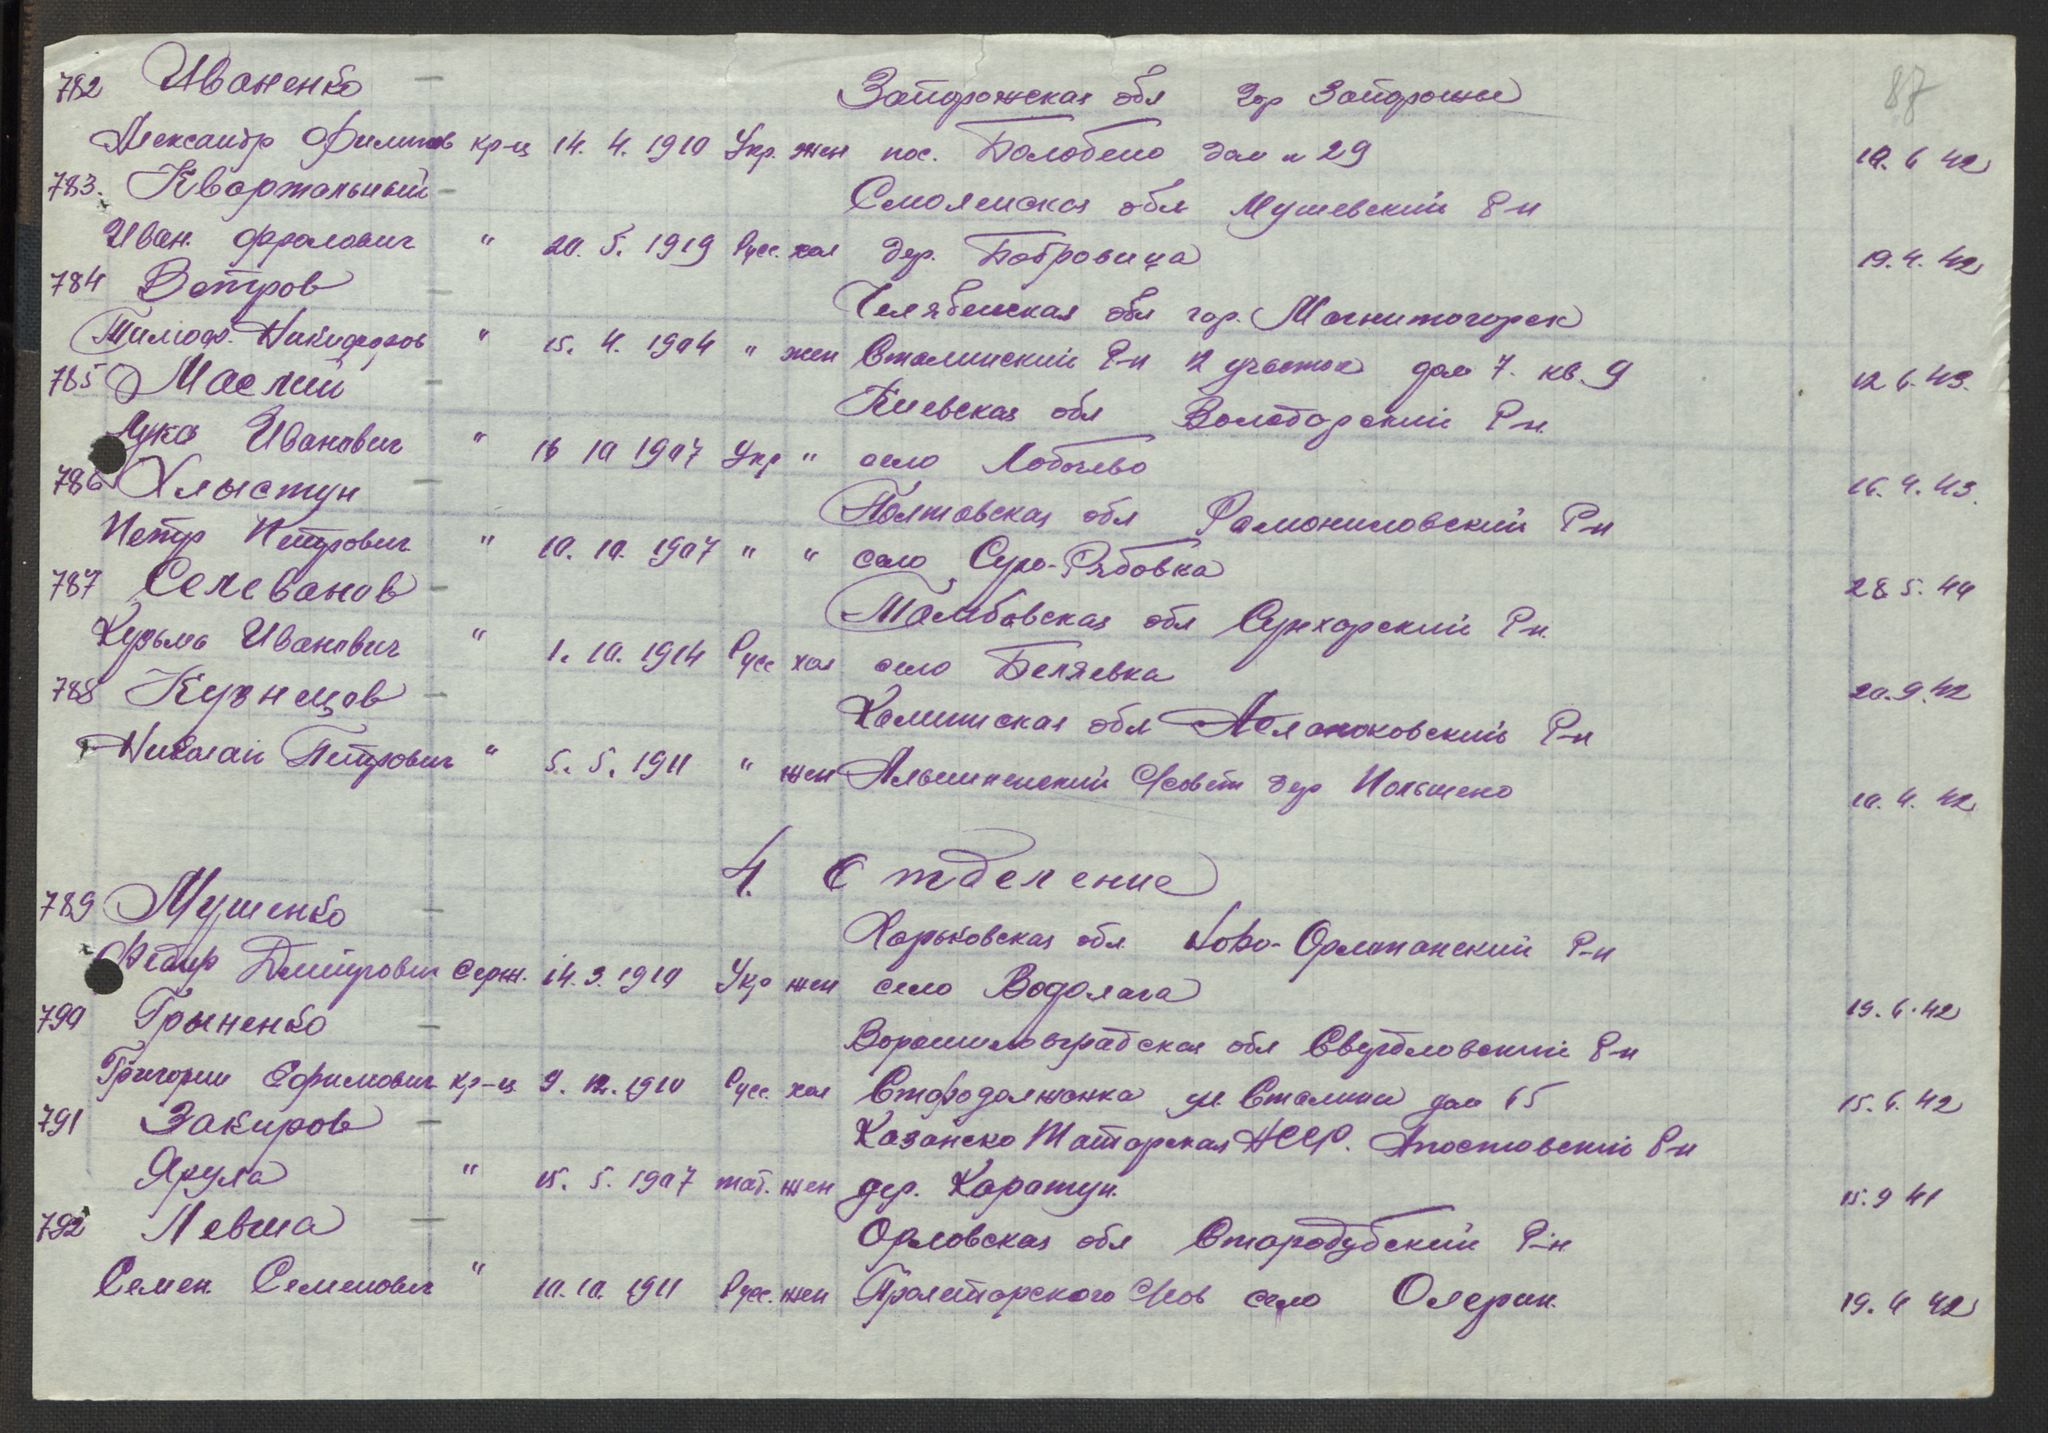 87
782 Иваненко — Запорожская обл гор Запорожье
Александр Филипов кр-ц 14. 4. 1910 Укр. жен пос. дом № 29 10. 6 42
783. Квартальный — Смоленская обл Мушевский Р-н
Иван Фролович " 20. 5. 1919 Русс. хол дер. Бобровица 19. 4. 42
784 Ветров — Челябенская обл гор. Магнитогорск
Тимоф. Никифоров " 15. 4. 1904 " жен Сталинский Р-н 12 участок дом 7. кв. 9 12 6. 43.
785 Маслий — Киевская обл Володарский Р-н
Лука Иванович " 18 10 1907 Укр " село Лобачево 16. 4. 43.
786 Хлыстун — Полтавская обл Р-н
Петр Петрович " 10. 10. 1907 " " село Рябовка 28 5. 44
787 Селеванов — Тамбовская обл Р-н
Кузьма Иванович " 1. 10. 1914 Русс хол село Беляевка 20. 9. 42
788 Кузнецов — Калининская обл Р-н
Николай Петрович " 5. 5. 1911 " жен С/совет дер 10. 4. 42
4. Отделение
789 Мушенко — Харьковская обл Ново- Р-н
Федир Дмитрович Серж. 14. 3. 1910 Укр жен село Водолага 19. 6. 42
790 Гриненко — Ворошиловградская обл Свердловский Р-н
Григории Ефимович кр-ц 9. 12. 1910 Русс. хол ул. Сталина дом 65 15. 6. 42
791 Закиров — Казанско Татарская АССР. Апостовский Р-н
Ярула " 15. 5. 1907 тат. жен дер. Каратун. 15. 9 41
792 Левша — Орловская обл Стародубский Р-н
Семен Семенович " 10. 10. 1911 Русс. жен Пролетарского С/сов село 19. 4 42